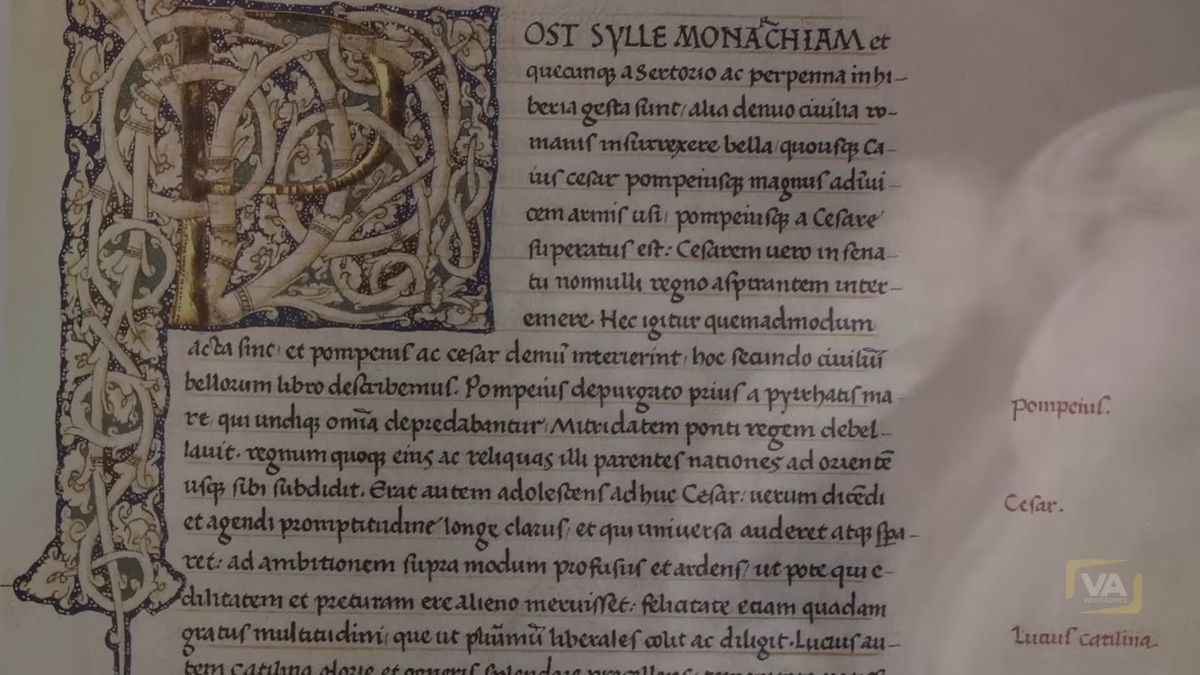 POST SYLLE MONAC̃HIAM et
quecunqꝫ a Sertorio ac perpenna in hi-
beria gesta sunt/ alia denuo ciuilia ro-
manis insurrexere bella/ quousqꝫ Ca-
ius cesar pompeiusqꝫ magnus adĩui-
cem armis usi/ pompeiusqꝫ a Cesare
superatus est: Cesarem uero in sena-
tu nonnulli regno aspirantem inter-
emere. Hec igitur quemadmodum
acta sint/ et pompeius ac cesar demũ interierint/ hoc secundo ciuiliũ
bellorum libro describemus. Pompeius depurgato prius a pyrrhatis ma-
re/ qui undiqꝫ omĩa depredabantur/ Mitridatem ponti regem debel-
lauit. regnum quoqꝫ eius ac reliquas illi parentes nationes ad orientẽ
usqꝫ sibi subdidit. Erat autem adolescens adhuc Cesar: uerum dicẽdi
et agendi promptitudine longe clarus/ et qui universa auderet atqꝫ spa-
ret: ad ambitionem supra modum profusus et ardens/ ut pote qui e-
dilitatem et preturam ere alieno meruisset: felicitate etiam quadam
gratus multitudini/ que ut plurimũ liberales colit ac diligit. Lucius au-
tem Catilina glorie et generis splendore
Pompeius.
Cesar.
Lucius catilina
VA
VIDEO ADVICE